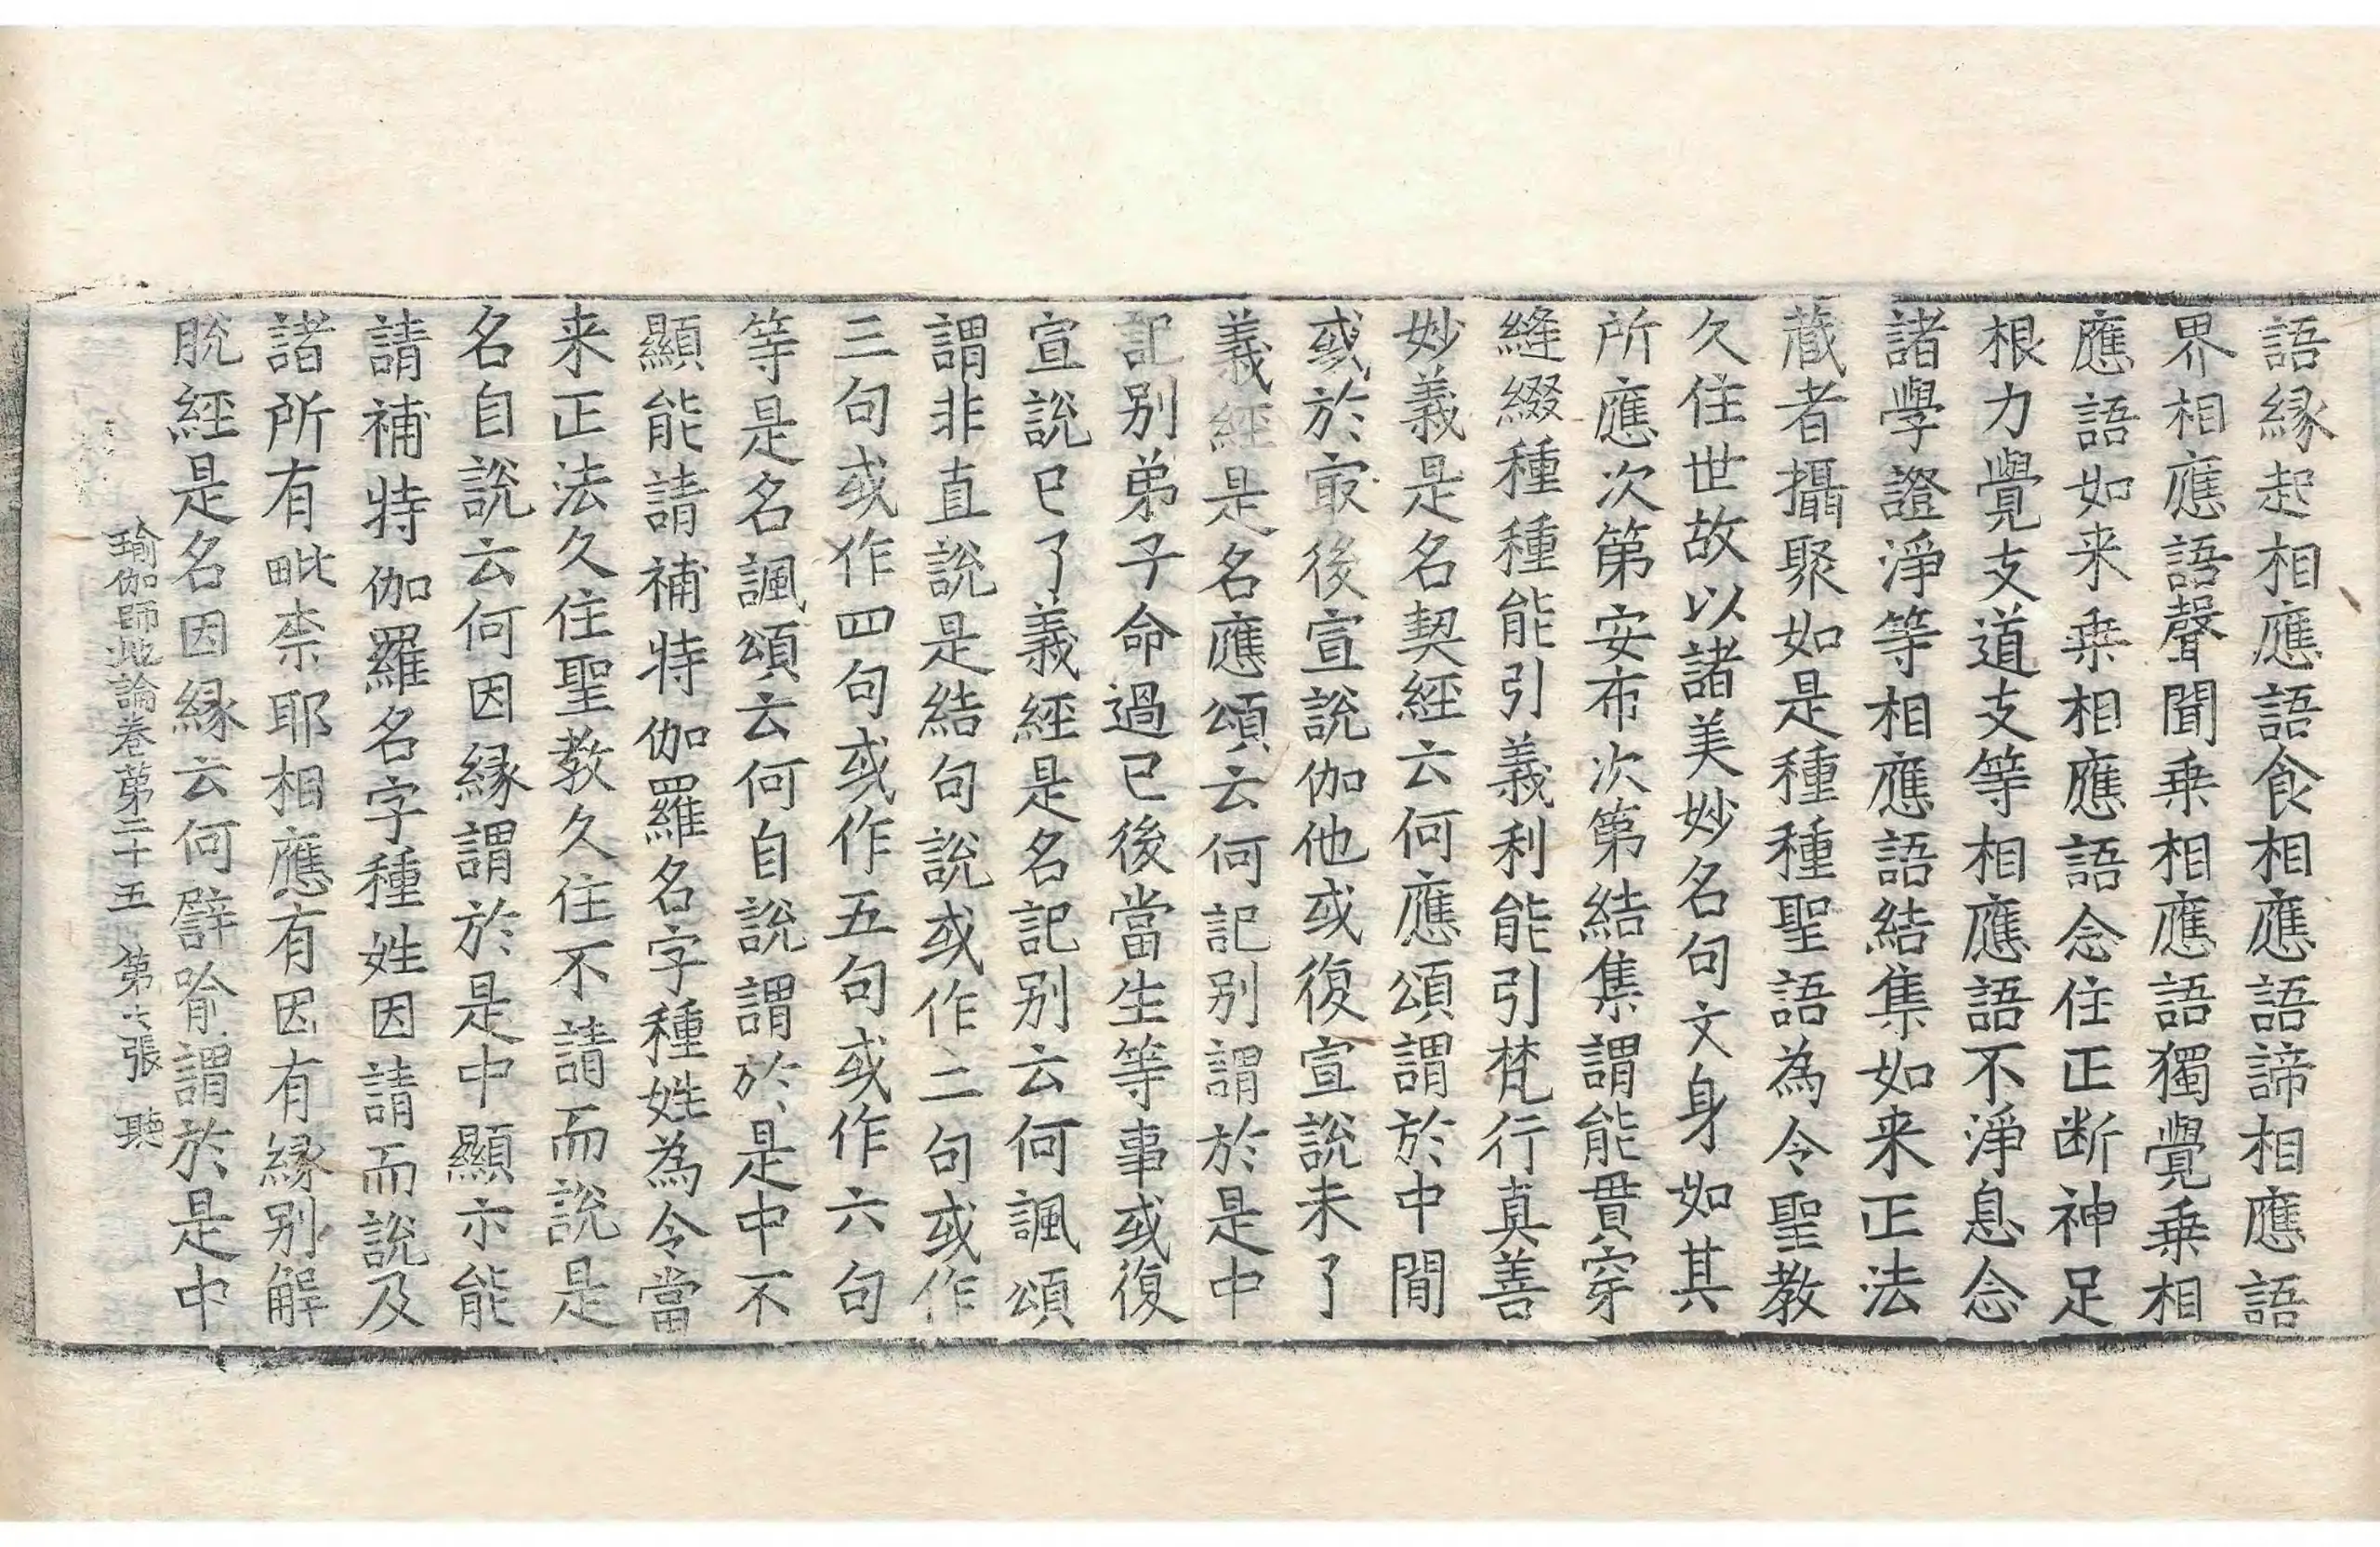 語縁起相應語食相應語諦相應語
界相應語聲聞乗相應語獨覺乗相
應語如来乗相應語念住正断神足
根力覺支道支等相應語不淨息念
諸學證淨等相應語結集如来正法
蔵者攝聚如是種種聖語為令聖教
久住世故以諸美妙名句文身如其
所應次第安布次第結集謂能貫穿
縫綴種種能引義利能引梵行真善
妙義是名契經云何應頌謂於中間
或於㝡後宣說伽他或復宣說未了
義經是名應頌云何記别謂於是中
記别弟子命過已後當生等事或復
宣說已了義經是名記别云何諷頌
謂非直說是結句說或作二句或作
三句或作四句或作五句或作六句
等是名諷頌云何自說謂於是中不
顯能請補特伽羅名字種姓為令當
来正法久住聖教久住不請而說是
名自說云何因縁謂於是中顯示能
請補特伽羅名字種姓因請而說及
諸所有毗柰耶相應有因有縁别解
脫經是名因縁云何譬喻謂於是中
瑜伽師地論卷第二十五 第六張 聽